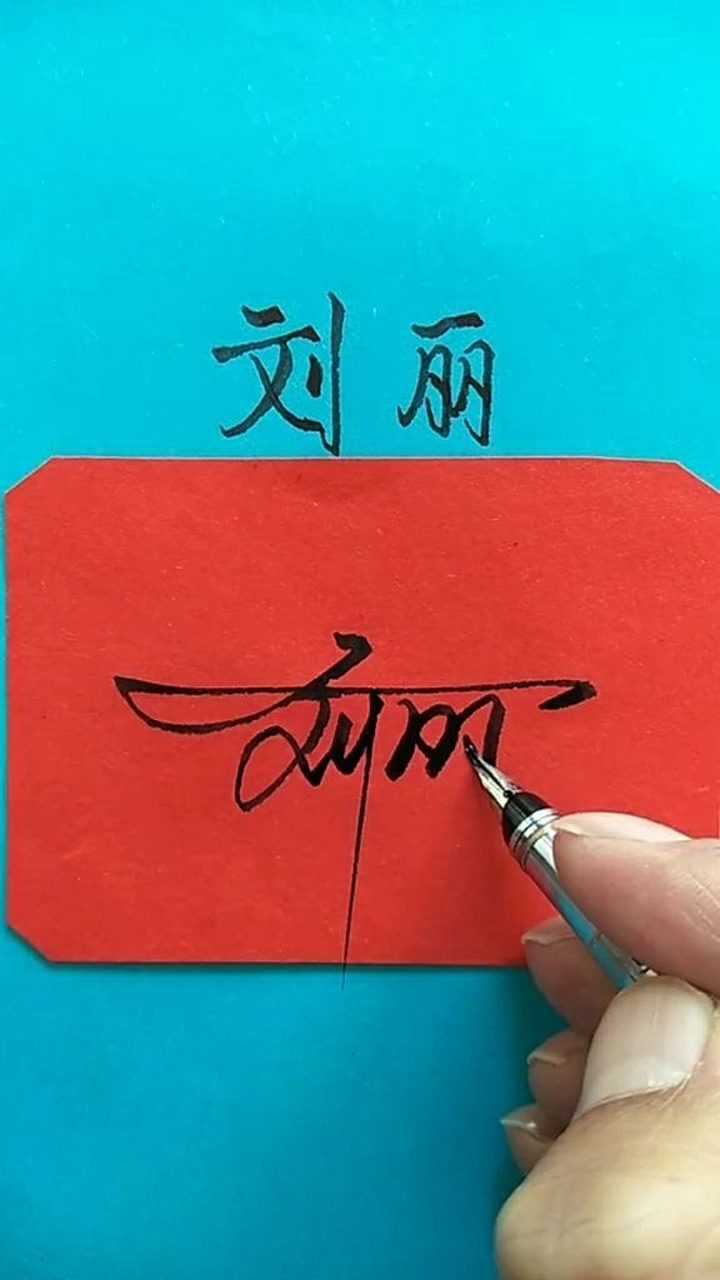 刘丽
刘丽